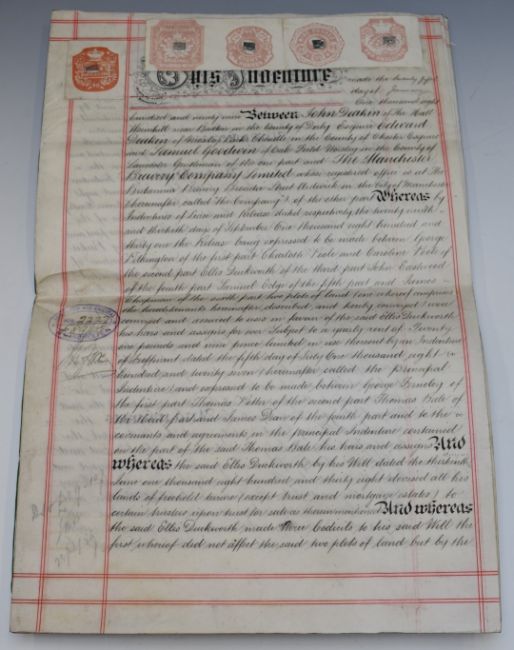 This Indenture made the twenty fifth
day of January
One thousand eight
hundred and ninety nine Between John Deakin of the Hall
near Buxton in the County of Derby Esquire Edward
Deakin of in the County of Chester Esquire
and Samuel Goodwin of Oak Field in the County of
Lancaster Gentleman of the one part and The Manchester
Brewery Company Limited whose registered office is at the
Britannia Brewery Street Ardwick in the City of Manchester
(hereinafter called "the Company") of the other part Whereas by
Indentures of Lease and Release dated respectively the twenty ninth
and thirtieth days of September One thousand eight hundred and
thirty one the Release being expressed to be made between George
Pilkington of the first part Charlotte Poole and Caroline Poole of
the second part Ellis Duckworth of the third part John Eastwood
of the fourth part Samuel Edge of the fifth part and James
Chapman of the sixth part two plots of land
the hereditaments hereinafter described, and hereby conveyed were
conveyed and assured to uses in favour of the said Ellis Duckworth
his heirs and assigns for ever Subject to a yearly rent of Twenty
six pounds and nine pence limited in use thereout by an Indenture
of Feoffment dated the fifth day of July One thousand eight
hundred and twenty seven (hereinafter called the principal
Indenture) and expressed to be made between George of
the first part Thomas Potter of the second part Thomas Bale of
the third part and James of the fourth part and to the
covenants and agreements in the principal Indenture contained
on the part of the said Thomas Bale his heirs and assigns And
whereas the said Ellis Duckworth by his Will dated the thirteenth
June one thousand eight hundred and thirty eight devised all his
lands of freehold tenure (except trust and mortgage estates) to
certain trustees upon trust for sale as therein mentioned And whereas
the said Ellis Duckworth made four Codicils to his said Will the
first whereof did not affect the said two plots of land but by the